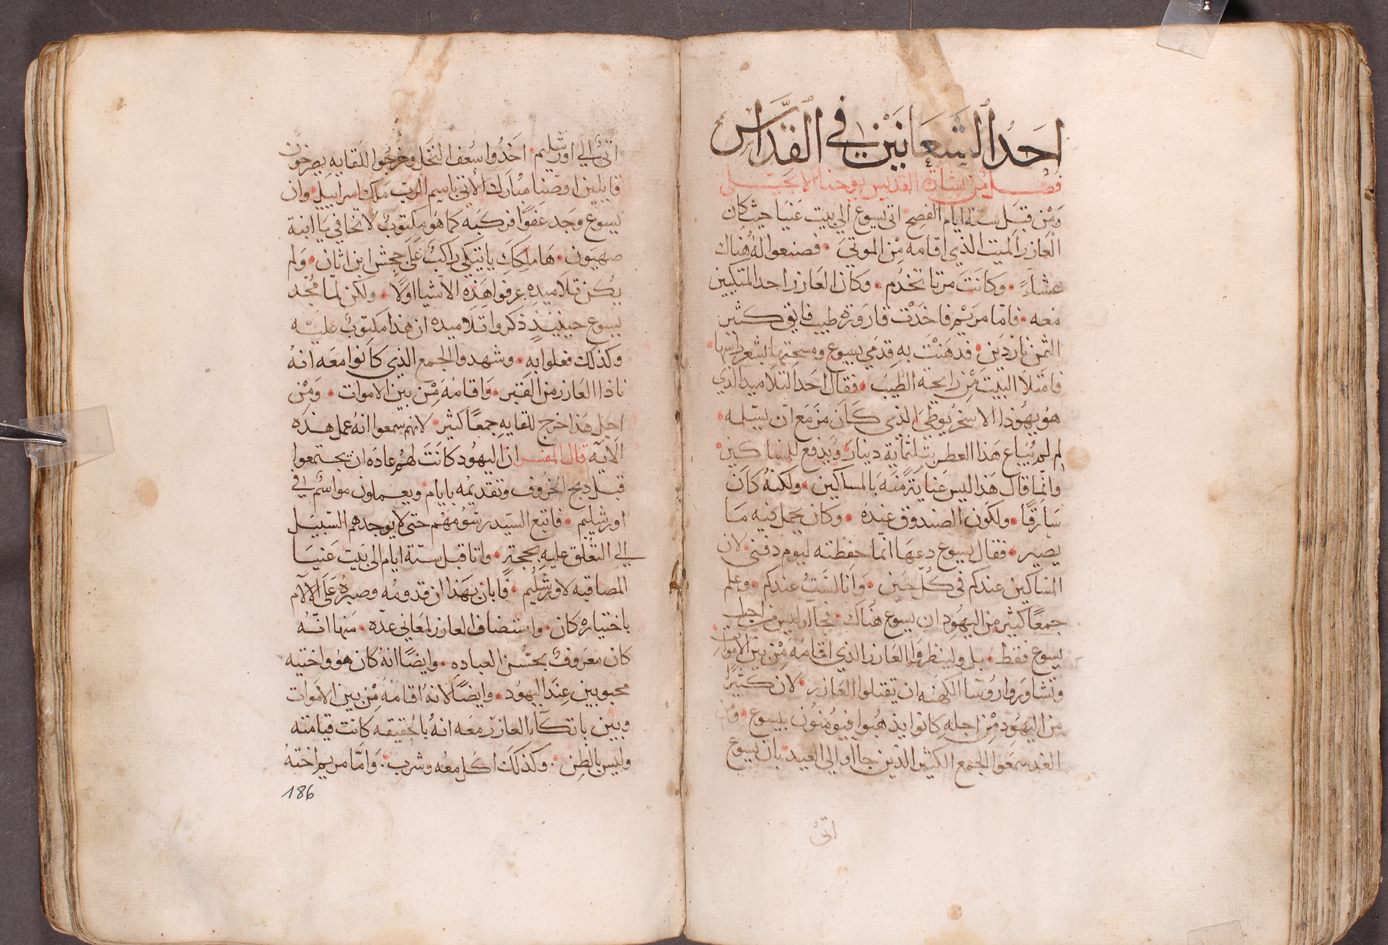 احد الشعانين في القداس
فصل من بشارة القديس يوحنا الانجيلي
ومن قبل ستة ايام الفصح اتى يسوع الى بيت عنيا حيث كان
العازر الميت الذي اقامه من الموتى • فصنعوا له هناك
عشاءً • وكانت مرتا تخدم • وكان العازر احد المتكيين
معه • فاما مريم فاخذت قارورة طيب فايق كثير
الثمن ناردين • فدهنت به قدمي يسوع ومسحتهما بشعر راسها •
فامتلا البيت من رايحة الطيب • فقال احد التلاميد الذي
هو يهودا الاسخريوطي الذي كان مزمع ان يسلمه •
لم لم يباع هذا العطر بثلثماية دينار ويدفع للمساكين •
وانما قال هذا ليس عناية منه بالمساكين • ولكنه كان
سارقًا • ولكون الصندوق عنده • وكان يحمل فيه ما
يصير • فقال يسوع دعها انما حفظته ليوم دفني • لان
المساكين عندكم في كل حين • وانا لست عندكم • وعلم
جمعًا كثير من اليهود ان يسوع هناك • فجا وليس من اجل
يسوع فقط • بل ولينظروا العازر الذي اقامه من بين الاموات
وتشاوروا روسا الكهنه ان يقتلوا العازر • لان كثيرًا
من اليهود من اجله كانوا يذهبوا فيومنون بيسوع • ومن
الغد سمعوا الجمع الكثير الذين جااوا الى العيد • بان يسوع
اتى
اتى الى اورشليم • اخذوا سعف النخل وخرجوا للقايه يصرخون
قايلين اوصنا مبارك الاتي باسم الرب ملك اسراييل • وان
يسوع وجد عفوًا فركبه كما هو مكتوب لا تخافي يا ابنة
صهيون • ها ملكك ياتيكي راكب على جحش ابن اتان • ولم
يكن تلاميده عرفوا هذه الاشيا اولًا • ولكن لما مجد
يسوع حينيدٍ ذكروا تلاميده ان هذا مكتوب عليه
وكذلك فعلوا به • وشهدوا الجمع الذي كانوا معه انه
نادا العازر من القبر • واقامه من بين الاموات • ومن
اجل هذا خرج للقايه جمعًا كثير • لانهم سمعوا انه عمل هذه
الايه قال المفسر ان اليهود كانت لهم عاده ان يجتمعوا
قبل دبح الخروف وتقديمه بايام • ويعملون مواسم في
اورشليم • فاتبع السيد رسومهم حتى لا يوجدهم السبيل
الى التعلق عليه بحجةٍ • واتا قبل ستة ايام الى بيت عنيا
المصاقبه لاورشليم • فابان بهذا ان قدومه وصبره على الالام
باختياره كان • واستضاف العازر لمعاني عده • منها انه
كان معروف بحسن العباده • وايضًا انه كان هو واختيه
محبوبين عند اليهود • وايضًا لانه اقامه من بين الاموات
وبين باتكاء العازر معه انه بالحقيقه كانت قيامته
وليس بالظن • وكذلك اكل معه وشرب • واما مريم اخته
186